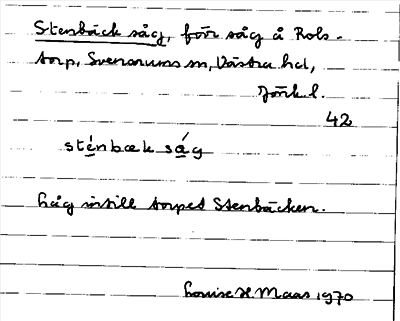 Stenbäck såg, förr såg å Rols-
torp, Svenarums sn, Västra hd,
Jönk. l.
42
sténbæk ság
Låg intill torpet Stenbäcken.
Louise H. Maas 1970